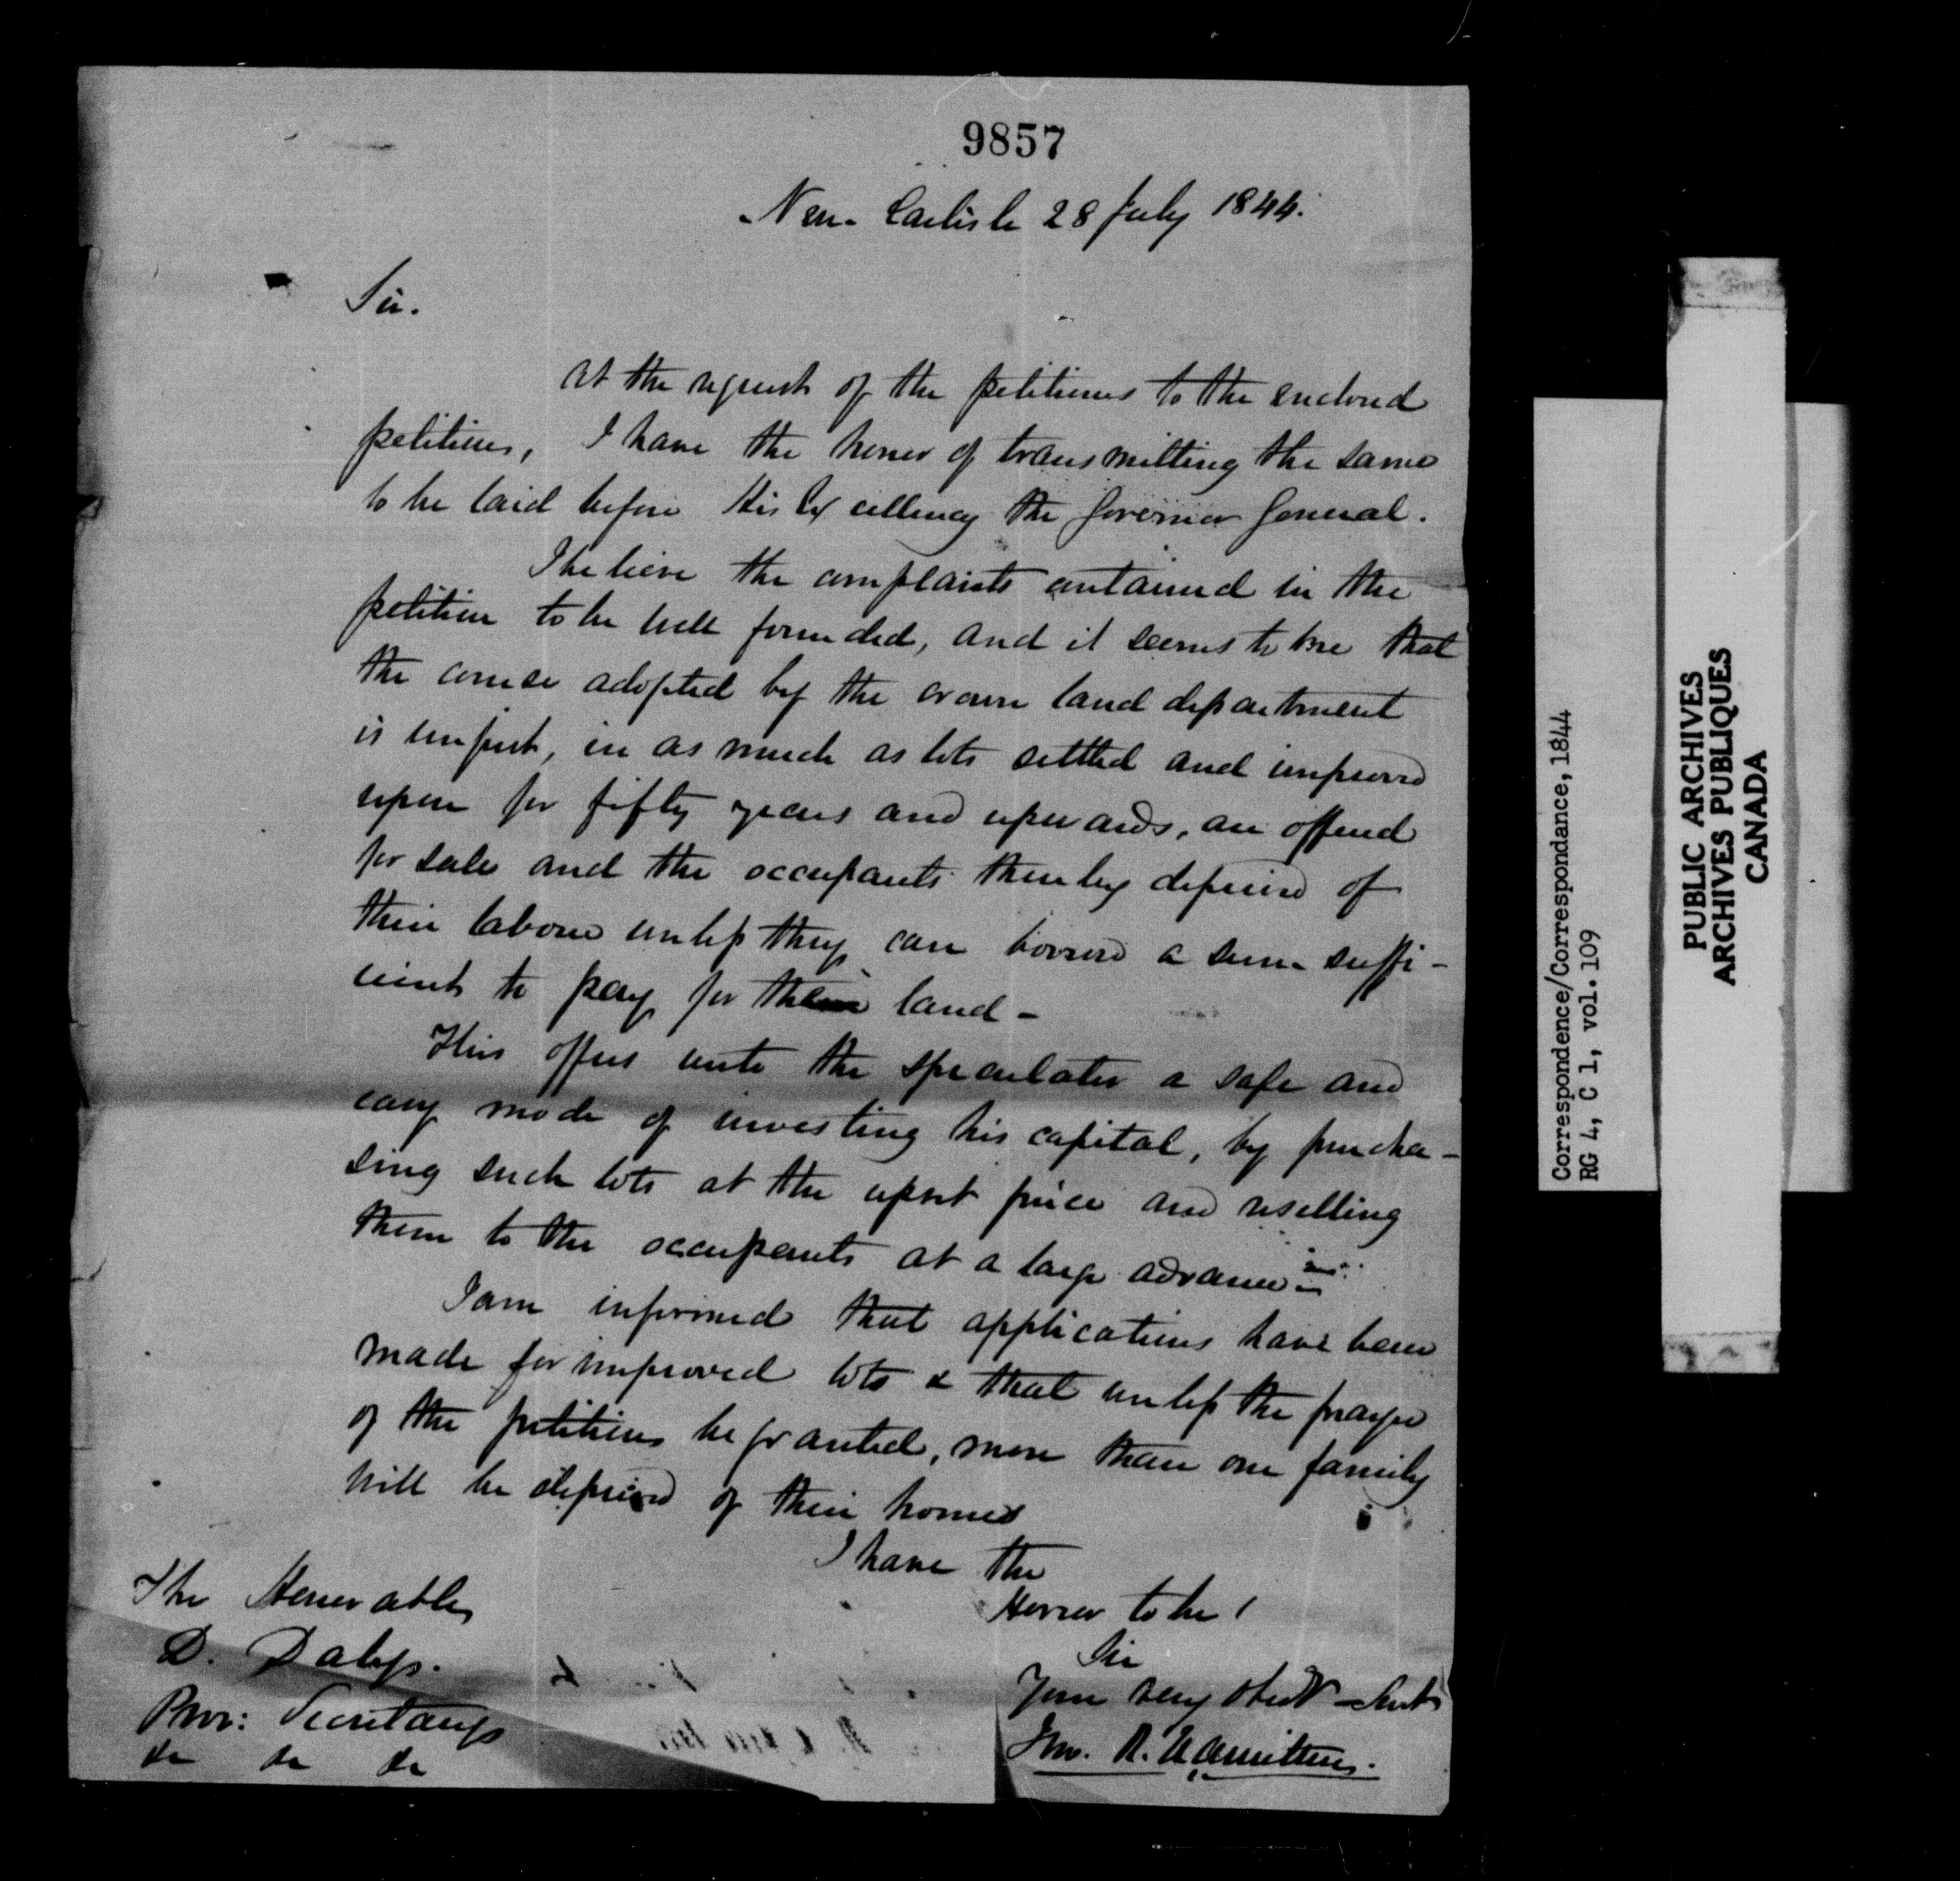 9857
New Carlisle 28 July 1844.
Sir.
At the request of the petitioners to the enclosed
petition, I have the honor of transmitting the same
to be laid before His Excellency the Governor General.
I believe the complaints contained in the
petition to be well founded, and it seems to me that
the course adopted by the crown land department
is unjust, in as much as lots settled and improved
upon for fifty years and upwards, are offered
for sale and the occupants thereby deprived of
their labour unless they can borrow a sum suffi-
cient to pay for their land -
This offers unto the speculator a safe and
easy mode of investing his capital, by purcha-
sing such lots at the upset price and reselling
them to the occupants at a large advance
I am informed that applications have been
made for improved lots & that unless the prayer
of the petition be granted, more than one family
will be deprived of their homes
I have the
Honor to be
Sir
Your very obedt Servt
Jno. R. Hamilton.
The Honorable
D. Daly.
Prov: Secretary
&c &c &c
Correspondence/Correspondance, 1844
RG 4, C 1, vol. 109
PUBLIC ARCHIVES
ARCHIVES PUBLIQUES
CANADA